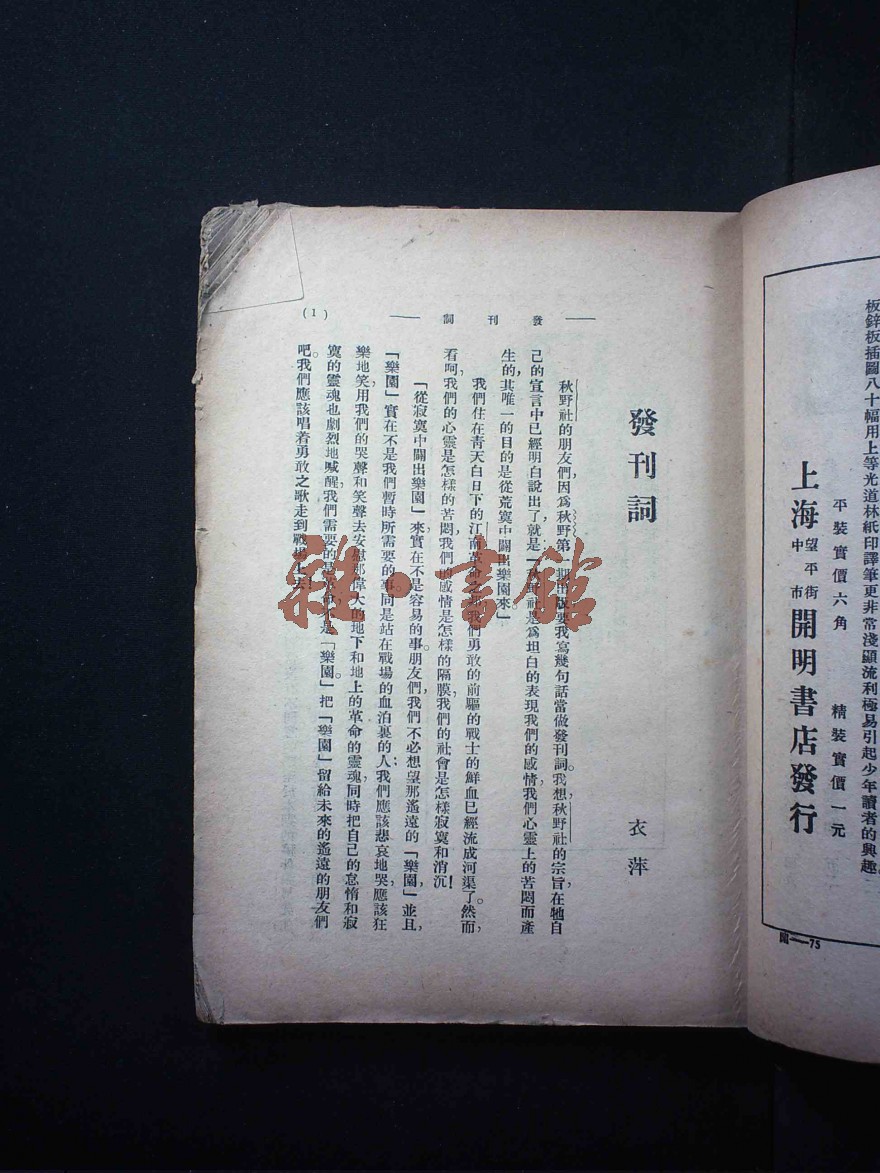 板鋅板插圖八十幅用上等光道林紙印譯筆更非常淺顯流利極易引起少年讀者的興趣。
平裝實價六角 精裝實價一元
上海望平街中市開明書店發行
開——75
—— 發刊詞 ——
(1)
發刊詞
衣萍
秋野社的朋友們，因爲秋野第一期出版要我寫幾句話當做發刊詞。我想，秋野社的宗旨，在牠自
己的宣言中已經明白說出了，就是「秋野社是爲坦白的表現我們的感情，我們心靈上的苦悶而產
生的，其唯一的目的是從荒寞中闢出樂園來」。
我們住在靑天白日下的江南革命之邦，我們勇敢的前驅的戰士的鮮血已經流成河渠了。然而，
看呵，我們的心靈是怎樣的苦悶，我們的感情是怎樣的隔膜，我們的社會是怎樣寂寞和消沉！
「從寂寞中闢出樂園」來，實在不是容易的事。朋友們，我們不必想望那遙遠的「樂園」，並且，
「樂園」實在不是我們暫時所需要的事。同是站在戰場的血泊裏的人，我們應該悲哀地哭，應該狂
樂地笑，用我們的哭聲和笑聲去安慰那偉大的地下和地上的革命的靈魂，同時把自己的怠惰和寂
寞的靈魂也劇烈地喊醒，我們需要的是革命，不是「樂園」。把「樂園」留給未來的遙遠的朋友們
吧。我們應該唱着勇敢之歌走到戰場上去！
雜·書館